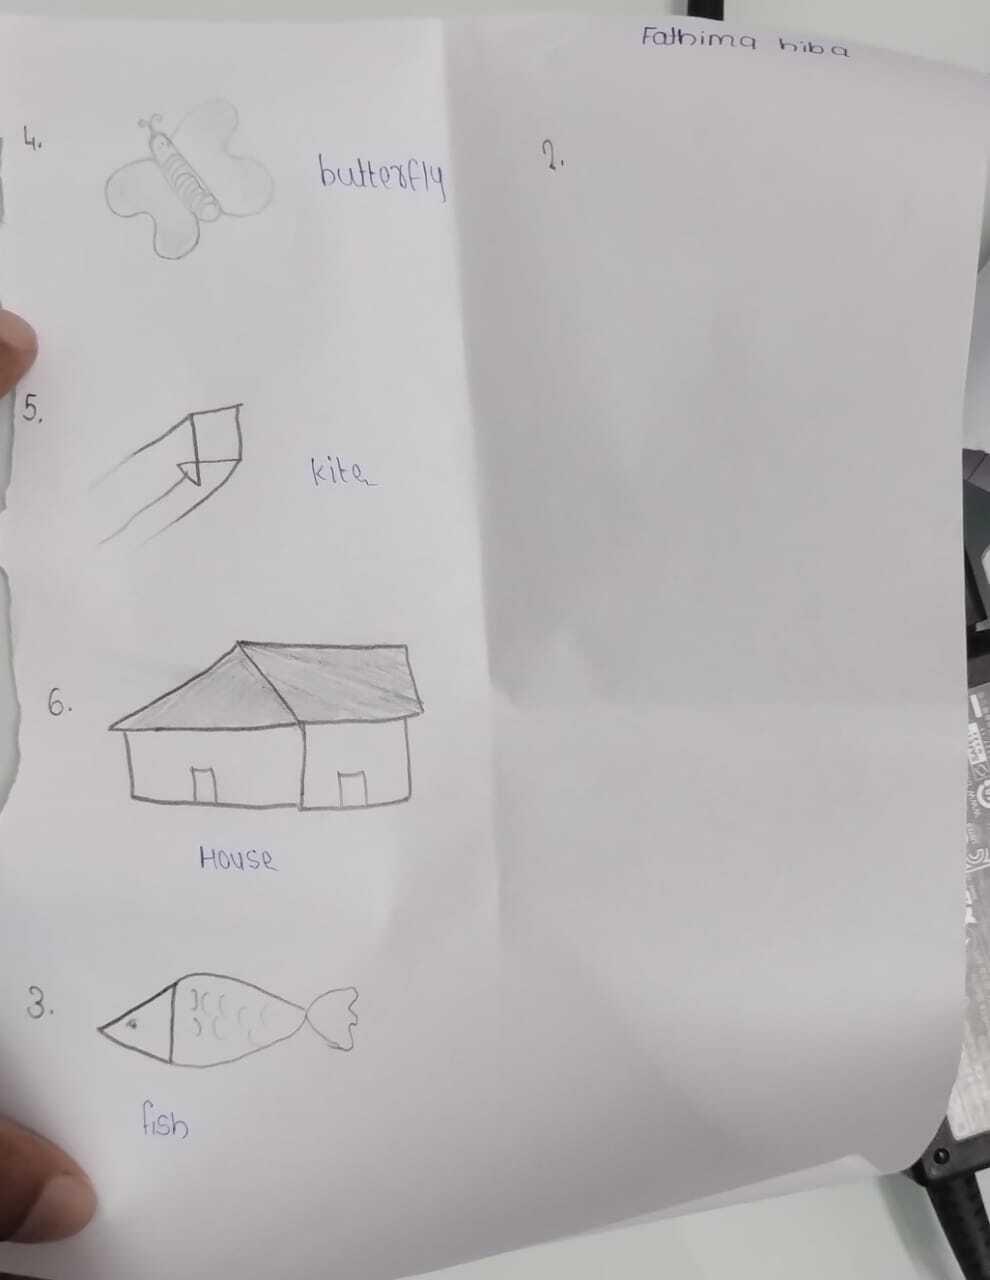 Fathima hiba
4.
butterfly
2.
5.
kite
6.
House
3.
fish